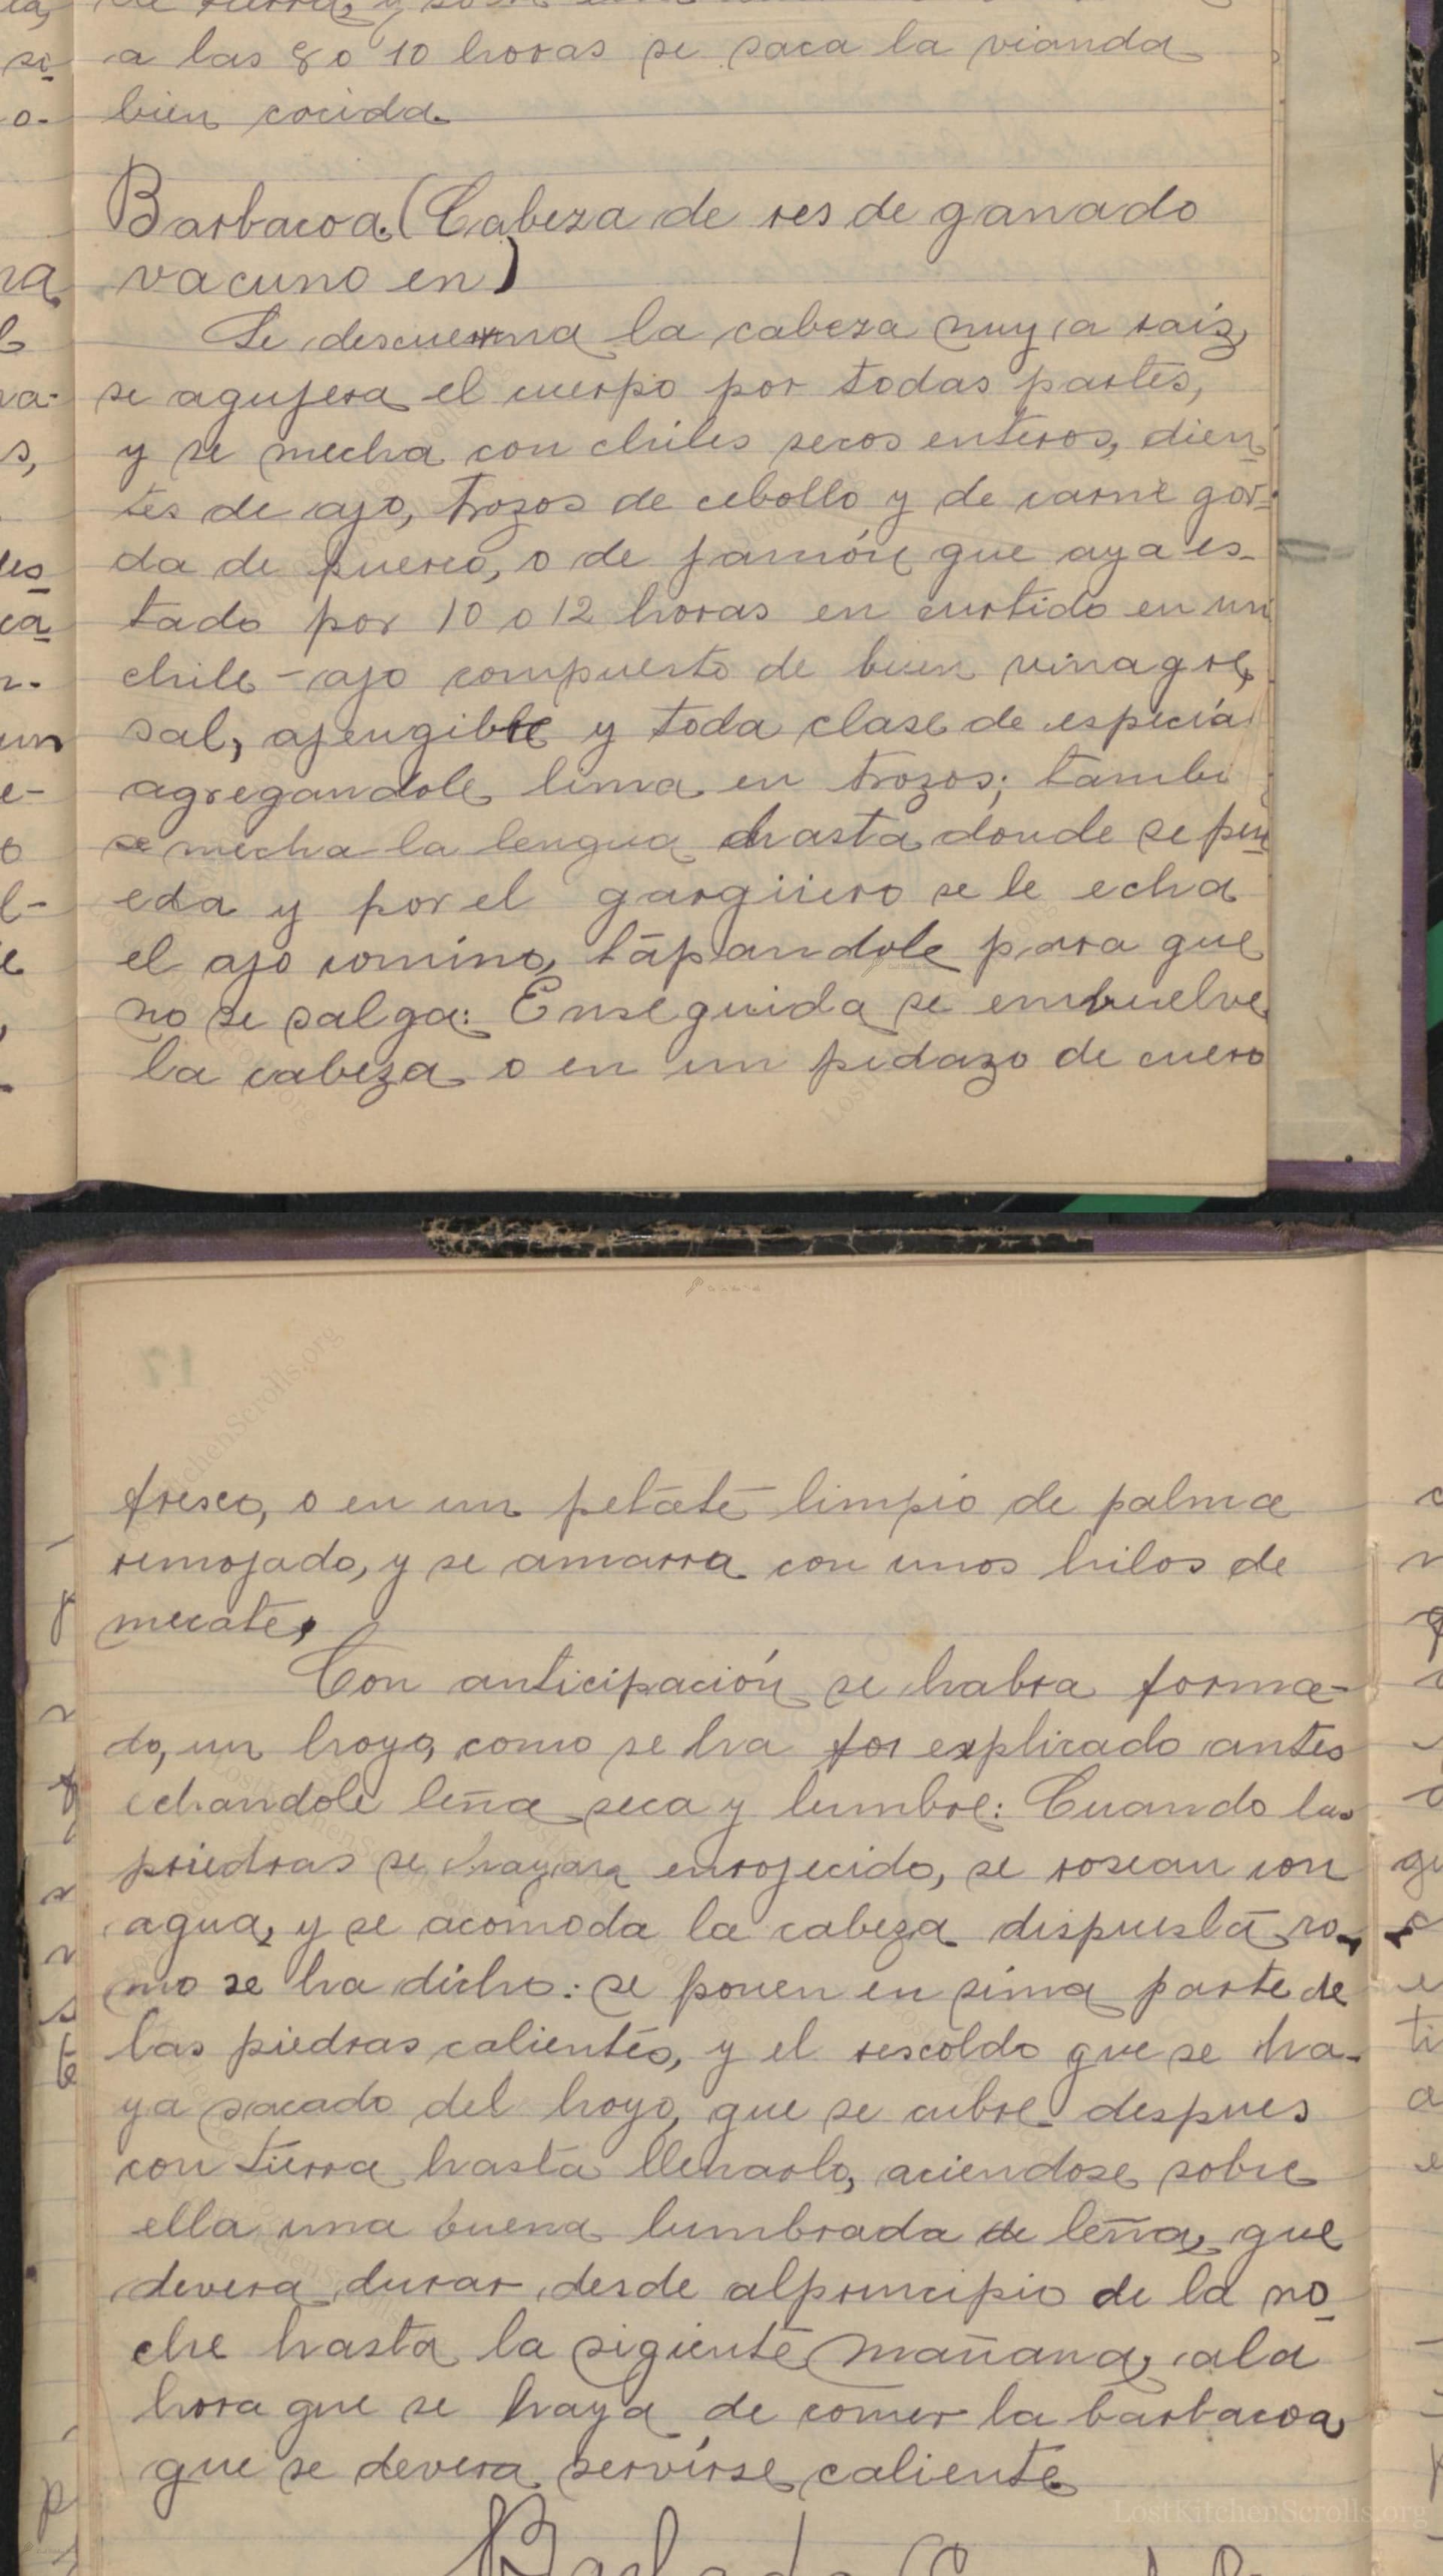 a las 8 o 10 horas se saca la vianda
bien cocida.
Barbacoa. (Cabeza de res de ganado
vacuno en)
Se descuerna la cabeza muy a raiz,
se agujera el cuerpo por todas partes,
y se mecha con chiles secos enteros, dien
tes de ajo, trozos de cebollo y de carne gor-
da de puerco, o de jamón que aya es-
tado por 10 o 12 horas en curtido en un
chile-ajo compuesto de buen vinagre,
sal, ajengibre y toda clase de especia
agregandole lima en trozos; tambi
se mecha la lengua hasta donde se pu
eda y por el gargüero se le echa
el ajo comino, tapandole para que
no se salga: Enseguida se embuelve
la cabeza o en un pedazo de cuero
fresco, o en un petate limpio de palma
remojado, y se amarra con unos hilos de
mecate,
Con anticipación se habra forma-
do, un hoyo, como se ha for explicado antes
echandole leña seca y lumbre: Cuando las
priedras se hayan enrojecido, se rosean con
agua, y se acomoda la cabeza dispuesta co-
mo se ha dicho: se ponen en sima parte de
las piedras calientes, y el rescoldo que se ha-
ya sacado del hoyo, que se cubre despues
con tierra hasta llenarlo, aciendose sobre
ella una buena lumbrada de leña, que
devera durar desde alprincipio de la no
che hasta la sigiente mañana, ala
hora que se haya de comer la barbacoa,
que se devera servirse caliente
LostKitchenScrolls.org